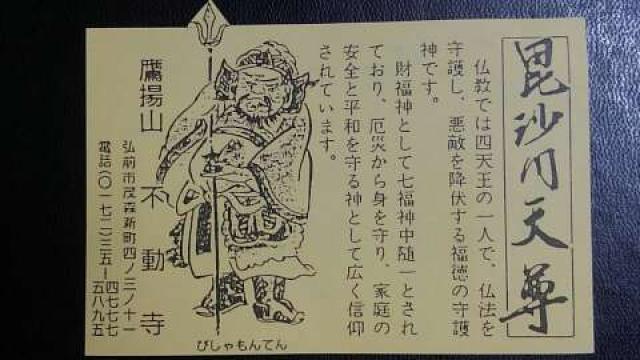 毘沙门天尊
仏教では四天王の一人で、仏法を
守護し、悪敵を降伏する福徳の守護
神です。
財福神として七福神中随一とされ
ており、厄災から身を守り、家庭の
安全と平和を守る神として広く信仰
されています。
びしゃもんてん
鷹揚山 不動寺
弘前市茂森新町四ノ三ノ十一
電話(〇一七二)三五-四七七七
五八九五